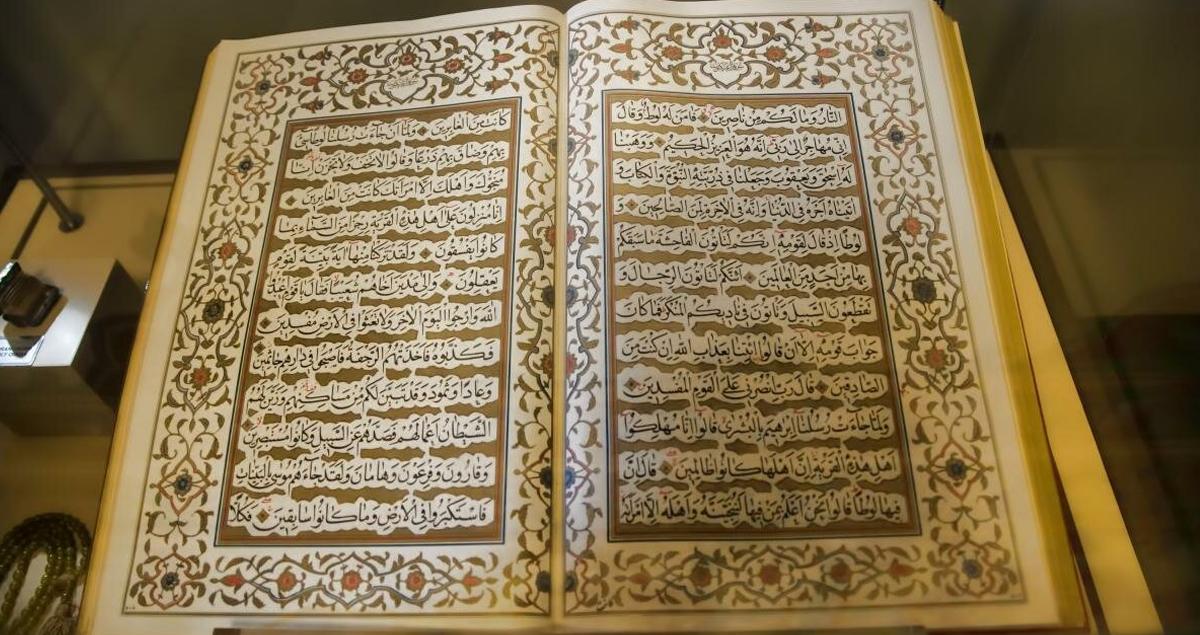 النّارُ وَما لَكُم مِن ناصِرينَ فَآمَنَ لَهُ لوطٌ وَقالَ
إِنّي مُهاجِرٌ إِلى رَبّي إِنَّهُ هُوَ العَزيزُ الحَكيمُ وَوَهَبنا
لَهُ إِسحقَ وَيَعقوبَ وَجَعَلنا في ذُرِّيَّتِهِ النُّبُوَّةَ وَالكِتابَ وَ
آتَيناهُ أَجرَهُ في الدُّنيا وَإِنَّهُ في الآخِرَةِ لَمِنَ الصّالِحينَ وَ
لوطًا إِذ قالَ لِقَومِهِ إِنَّكُم لَتَأتونَ الفاحِشَةَ ما سَبَقَكُم
بِها مِن أَحَدٍ مِنَ العالَمينَ أَئِنَّكُم لَتَأتونَ الرِّجالَ وَ
تَقطَعونَ السَّبيلَ وَتَأتونَ في ناديكُمُ المُنكَرَ فَما كانَ
جَوابَ قَومِهِ إِلّا أَن قالُوا ائتِنا بِعَذابِ اللهِ إِن كُنتَ مِنَ
الصّادِقينَ قالَ رَبِّ انصُرني عَلَى القَومِ المُفسِدينَ
وَلَمّا جاءَت رُسُلُنا إِبراهيمَ بِالبُشرى قالوا إِنّا مُهلِكوا
أَهلِ هذِهِ القَريَةِ إِنَّ أَهلَها كانوا ظالِمينَ قالَ إِنَّ
فيها لوطًا قالوا نَحنُ أَعلَمُ بِمَن فيها لَنُنَجِّيَنَّهُ وَأَهلَهُ إِلَّا امرَأَتَهُ
كانَت مِنَ الغابِرينَ وَلَمّا أَن جاءَت رُسُلُنا لوطًا سيءَ
بِهِم وَضاقَ بِهِم ذَرعًا وَقالوا لا تَخَف وَلا تَحزَن إِنّا
مُنَجّوكَ وَأَهلَكَ إِلَّا امرَأَتَكَ كانَت مِنَ الغابِرينَ
إِنّا مُنزِلونَ عَلى أَهلِ هذِهِ القَريَةِ رِجزًا مِنَ السَّماءِ بِما
كانوا يَفسُقونَ وَلَقَد تَرَكنا مِنها آيَةً بَيِّنَةً لِقَومٍ
يَعقِلونَ وَإِلى مَديَنَ أَخاهُم شُعَيبًا فَقالَ يا قَومِ اعبُدُوا
اللهَ وَارجُوا اليَومَ الآخِرَ وَلا تَعثَوا في الأَرضِ مُفسِدينَ
فَكَذَّبوهُ فَأَخَذَتهُمُ الرَّجفَةُ فَأَصبَحوا في دارِهِم جاثِمينَ
وَعادًا وَثَمودَ وَقَد تَبَيَّنَ لَكُم مِن مَساكِنِهِم وَزَيَّنَ لَهُمُ
الشَّيطانُ أَعمالَهُم فَصَدَّهُم عَنِ السَّبيلِ وَكانوا مُستَبصِرينَ
وَقارونَ وَفِرعَونَ وَهامانَ وَلَقَد جاءَهُم موسى بِالبَيِّناتِ
فَاستَكبَروا في الأَرضِ وَما كانوا سابِقينَ فَكُلًّا